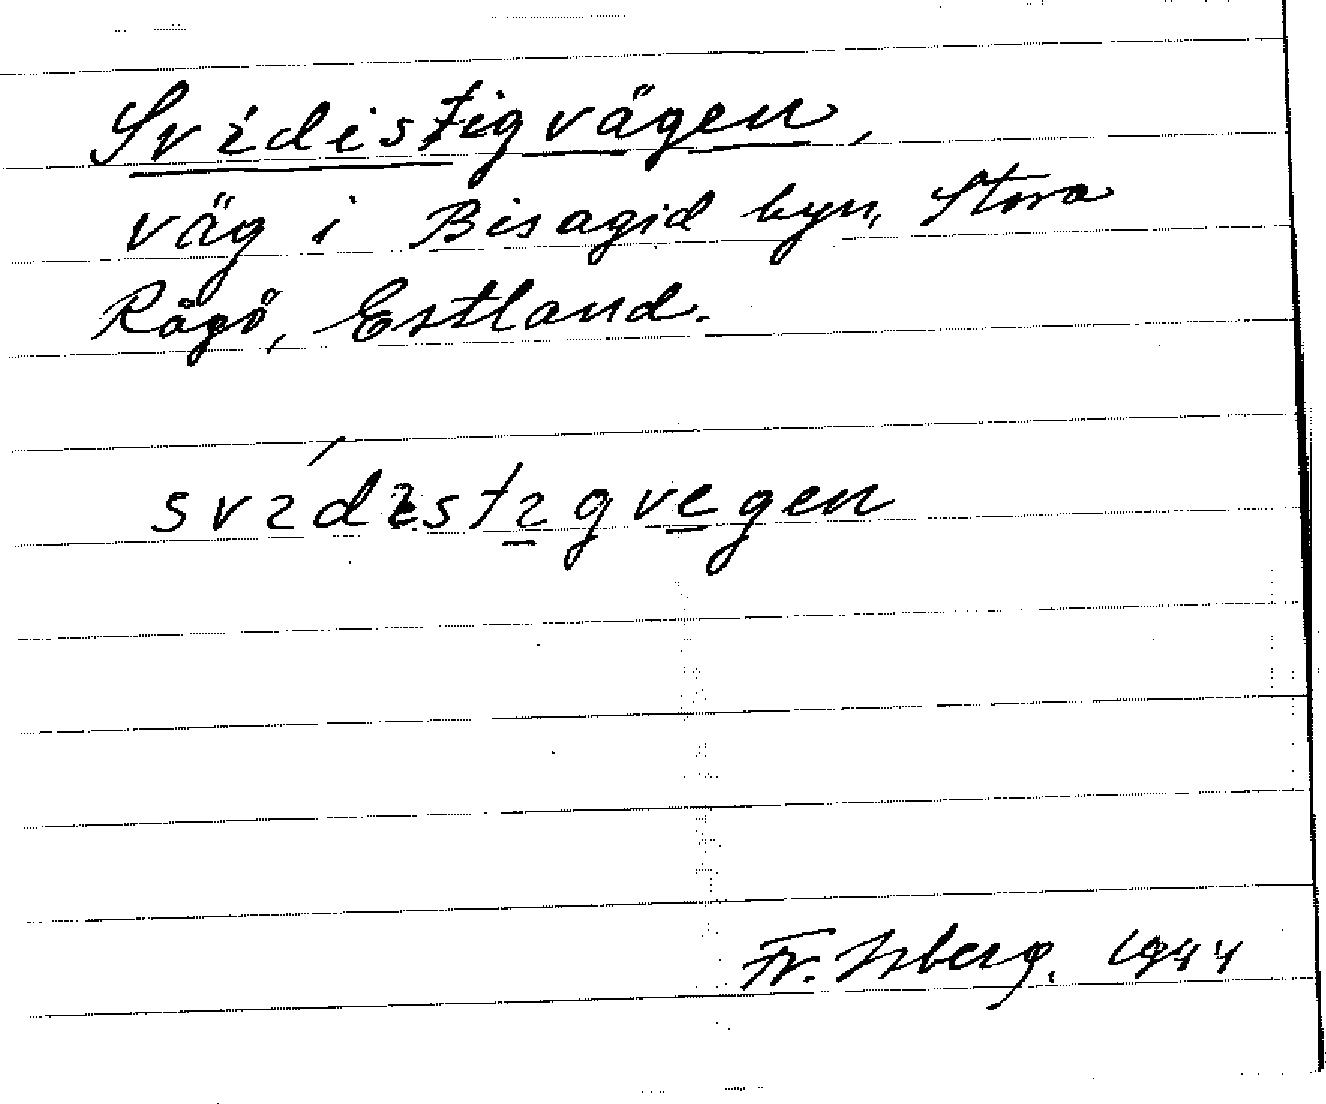 Svidistigvägen,
väg i Bisagid byn, Stora
Rågö, Estland.
svidistigvegen
Fr. Isberg. 1944